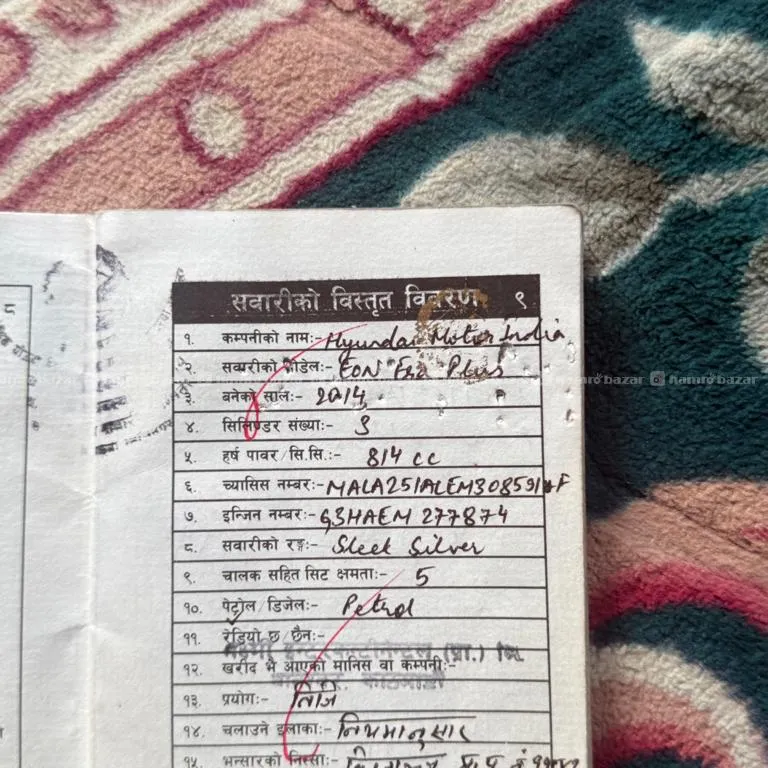 सवारीको विस्तृत विवरण ९
१. कम्पनीको नाम:- Hyundai Motor India
२. सवारीको मोडेल:- EON Era Plus
hamro bazar hamro bazar
३. बनेको साल:- 2014
४. सिलिण्डर संख्या:- 3
५. हर्ष पावर/सि.सि.:- 814 cc
६. च्यासिस नम्बर:-
७. इन्जिन नम्बर:- G3HAEM 277874
८. सवारीको रङ्ग:- Sleek Silver
९. चालक सहित सिट क्षमता:- 5
१०. पेट्रोल/डिजेल:- Petrol
११. रेडियो छ/छैन:-
इन्टरकन्टिनेन्टल (प्रा.) लि.
१२. खरीद भै आएको मानिस वा कम्पनी:-
काठमाडौं
१३. प्रयोग:- निजि
१४. चलाउने इलाका:- नियमानुसार
१५. भन्सारको निस्सा:-
८